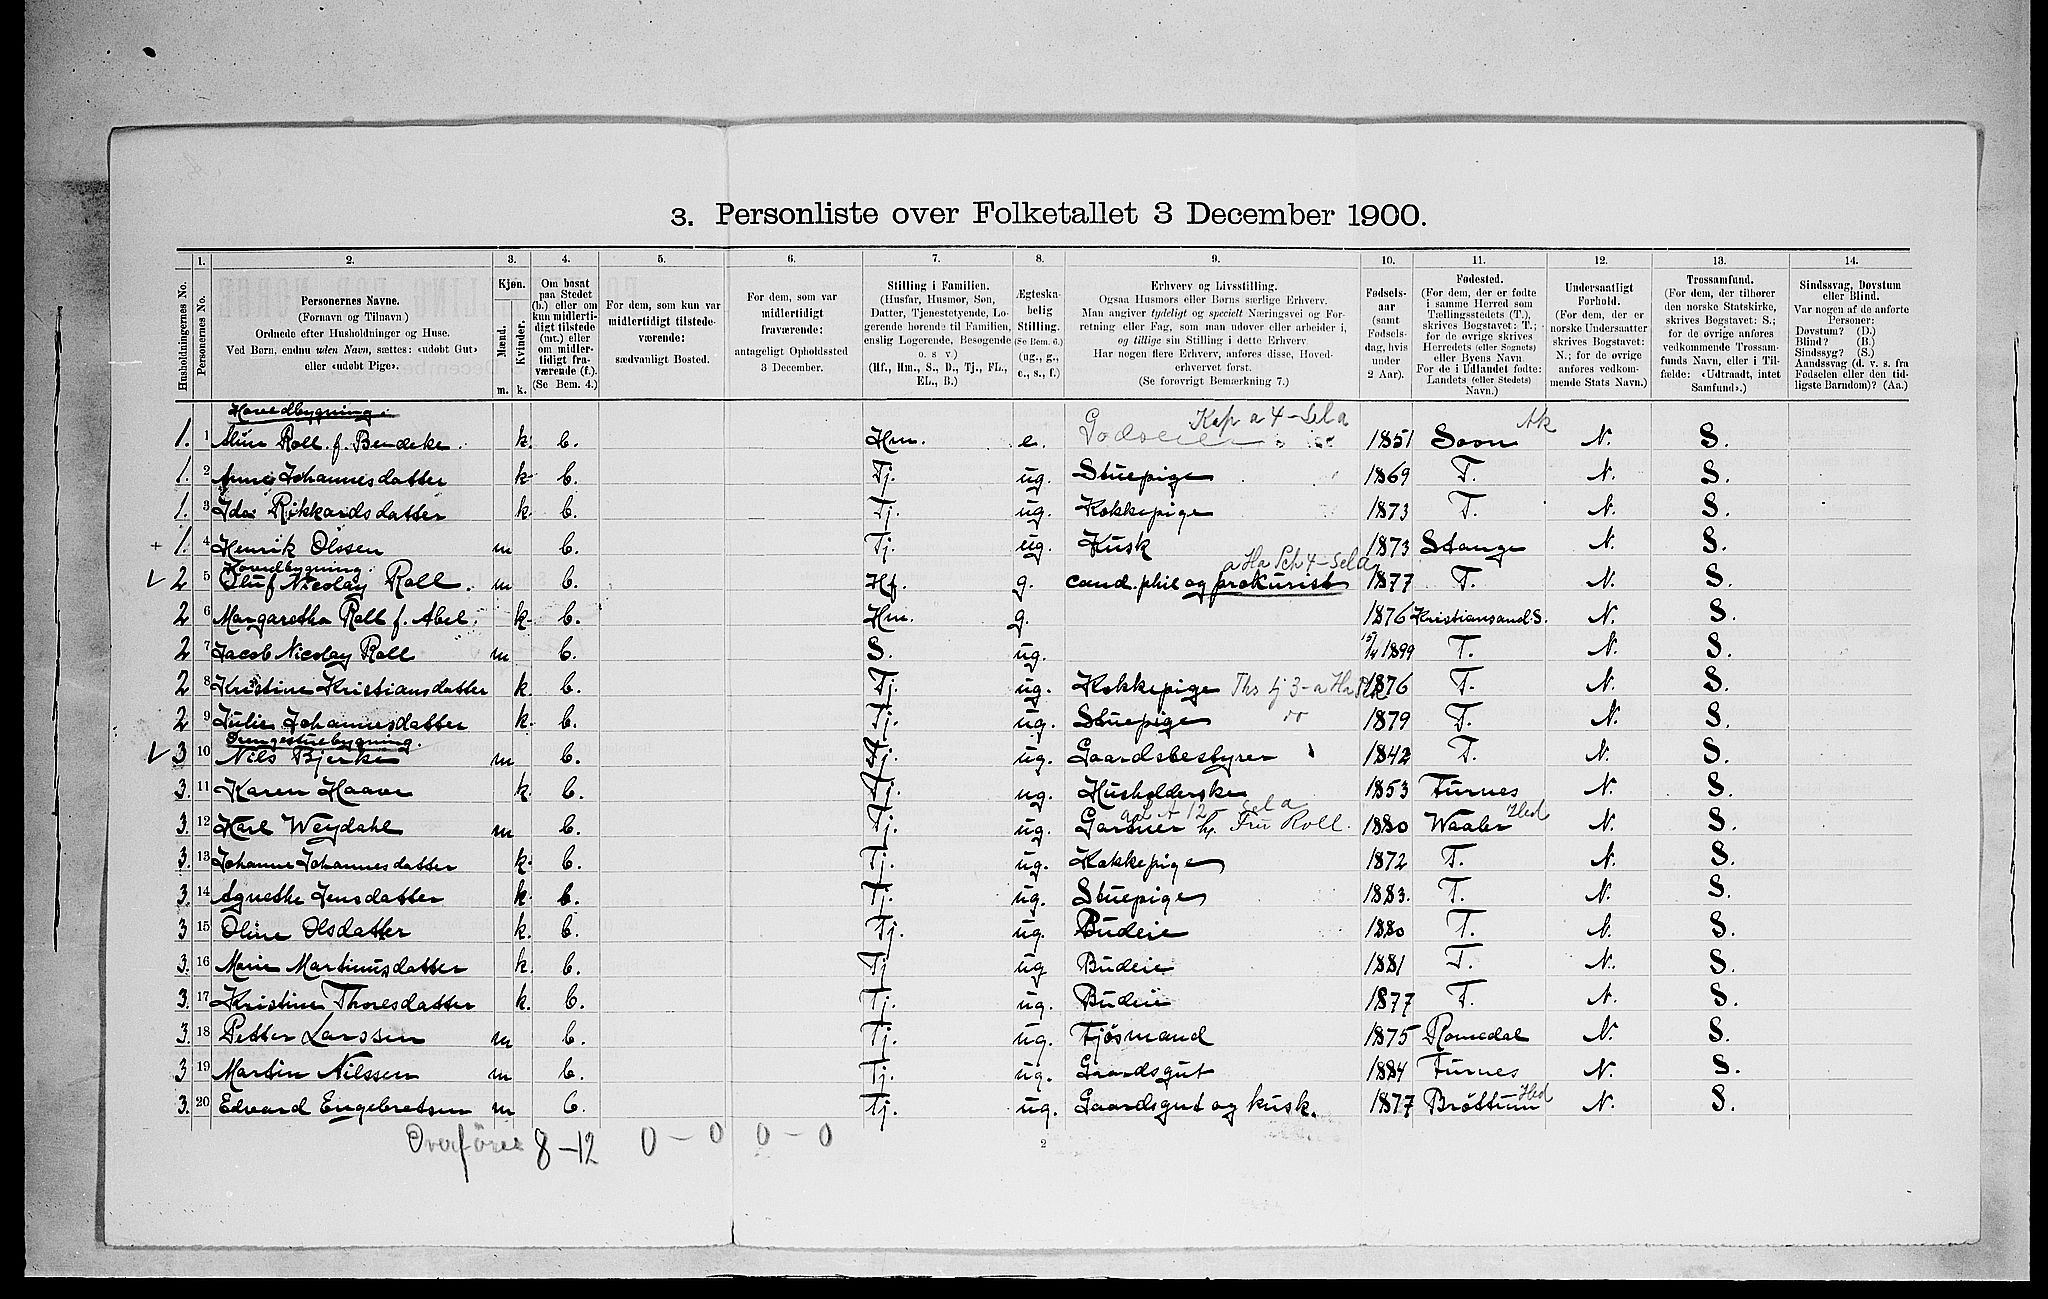 3. Personliste over Folketallet 3 December 1900.
Husholdningernes No.
1. Personernes No.
2. Personernes Navne.
(Fornavn og Tilnavn)
Ordnede efter Husholdninger og Huse.
Ved Børn, endnu uden Navn, sættes: «udøbt Gut»
eller «udøbt Pige».
3. Kjøn.
Mænd. m.
Kvinder. k.
4. Om bosat
paa Stedet
(b.) eller om
kun midlerti-
digt tilstede
(mt.) eller
om midler-
tidigt fra-
værende (f.).
(Se Bem. 4.)
5. For dem, som kun var
midlertidigt tilstede-
værende:
sædvanligt Bosted.
6. For dem, som var
midlertidigt
fraværende:
antageligt Opholdssted
3 December.
7. Stilling i Familien.
(Husfar, Husmor, Søn,
Datter, Tjenestetyende, Lo-
gerende hørende til Familien,
enslig Logerende, Besøgende
o. s v.)
(Hf., Hm., S., D., Tj., FL.,
EL., B.)
8. Ægteska-
belig
Stilling.
(Se Bem. 6.)
(ug., g.,
e., s., f.)
9. Erhverv og Livsstilling.
Ogsaa Husmors eller Børns særlige Erhverv.
Man angiver tydeligt og specielt Næringsvei og For-
retning eller Fag, som man udøver eller arbeider i,
og tillige sin Stilling i dette Erhverv
Har nogen flere Erhverv, anføres disse, Hoved-
erhvervet først.
(Se forøvrigt Bemærkning 7.)
10. Fødsels-
aar
(samt
Fødsels-
dag, hvis
under
2 Aar).
11. Fødested.
(For dem, der er fødte
i samme Herred som
Tællingsstedets (T.),
skrives Bogstavet: T.;
for de øvrige skrives
Herredets (eller Sognets)
eller Byens Navn
For de i Udlandet fødte:
Landets (eller Stedets)
Navn.)
12. Undersaatligt
Forhold.
(For dem, der er
norske Undersaatter
skrives Bogstavet:
N.; for de øvrige
anføres vedkom-
mende Stats Navn.)
13. Trossamfund.
(For dem, der tilhører
den norske Statskirke,
skrives Bogstavet: S.;
for de øvrige anføres
vedkommende Trossam-
funds Navn, eller i Til-
fælde: «Udtraadt, intet
Samfund».)
14. Sindssvag, Døvstum
eller Blind.
Var nogen af de anførte
Personer:
Døvstum? (D.)
Blind? (B.)
Sindssyg? (S.)
Aandssvag (d. v. s. fra
Fødselen eller den tid-
ligste Barndom)? (Aa.)
Hovedbygning
Kap a 4 - Sela Ak
1. 1 Aline Roll f. Bendeke. k. b. Hm. e. Godseier 1851 Soon N. S.
1. 2 Anne Johannesdatter k b. Tj. ug. Stuepige 1869 T. N. S.
1. 3 Ida Rikkardsdatter k b. Tj. ug. Kokkepige 1873 T. N. S.
+ 1. 4 Henrik Olssen m b. Tj. ug. Kusk 1873 Stange N. S.
Hovedbygning.
2 5 Oluf Nicolay Roll. m b. Hf. g. cand. phil og prokurist 1877 T. N. S.
2 6 Margaretha Roll f. Abel. k. b. Hm. g. 1876 Kristiansand. S. N. S.
2 7 Jacob Nicolay Roll m b. S. ug. 1899 T. N. S.
2 8 Kristine Kristiansdatter k b. Tj. ug. Kokkepige 1876 T. N. S.
2 9 Julie Johannesdatter k. b. Tj. ug. Stuepige 1879 T. N. S.
Drengestuebygning.
3 10 Nils Bjerke m b. Tj. ug. Gaardsbestyrer 1842 T. N. S.
3. 11 Karen Haave k. b. Tj. ug. Husholderske 1853 Furnes N. S.
Sela Hed
3. 12 Karl Weydahl m b. Tj. ug. Gartner hj. Fru Roll. 1880 Waaler N. S.
3. 13 Johanne Johannesdatter k. b. Tj. ug. Kokkepige 1872 T. N. S.
3. 14 Agnethe Jensdatter k. b. Tj. ug. Stuepige 1883. T. N. S.
3 15 Oline Olsdatter k. b. Tj. ug. Budeie 1880 T. N. S.
3. 16 Marie Martinusdatter k. b. Tj ug Budeie 1881 T. N. S.
3. 17 Kristine Thoresdatter k. b. Tj. ug. Budeie 1877 T. N. S.
3. 18 Petter Larssen m b. Tj. ug. Fjøsmand 1875 Romedal N. S.
3 19 Martin Nilssen m b. Tj. ug. Gaardsgut 1884 Furnes N. S.
3. 20 Edvard Engebretsen m b. Tj. ug. Gaardsgut og kusk. 1877 Brøttum Hed N. S.
Overføres 8 - 12 0 - 0 0 - 0
2